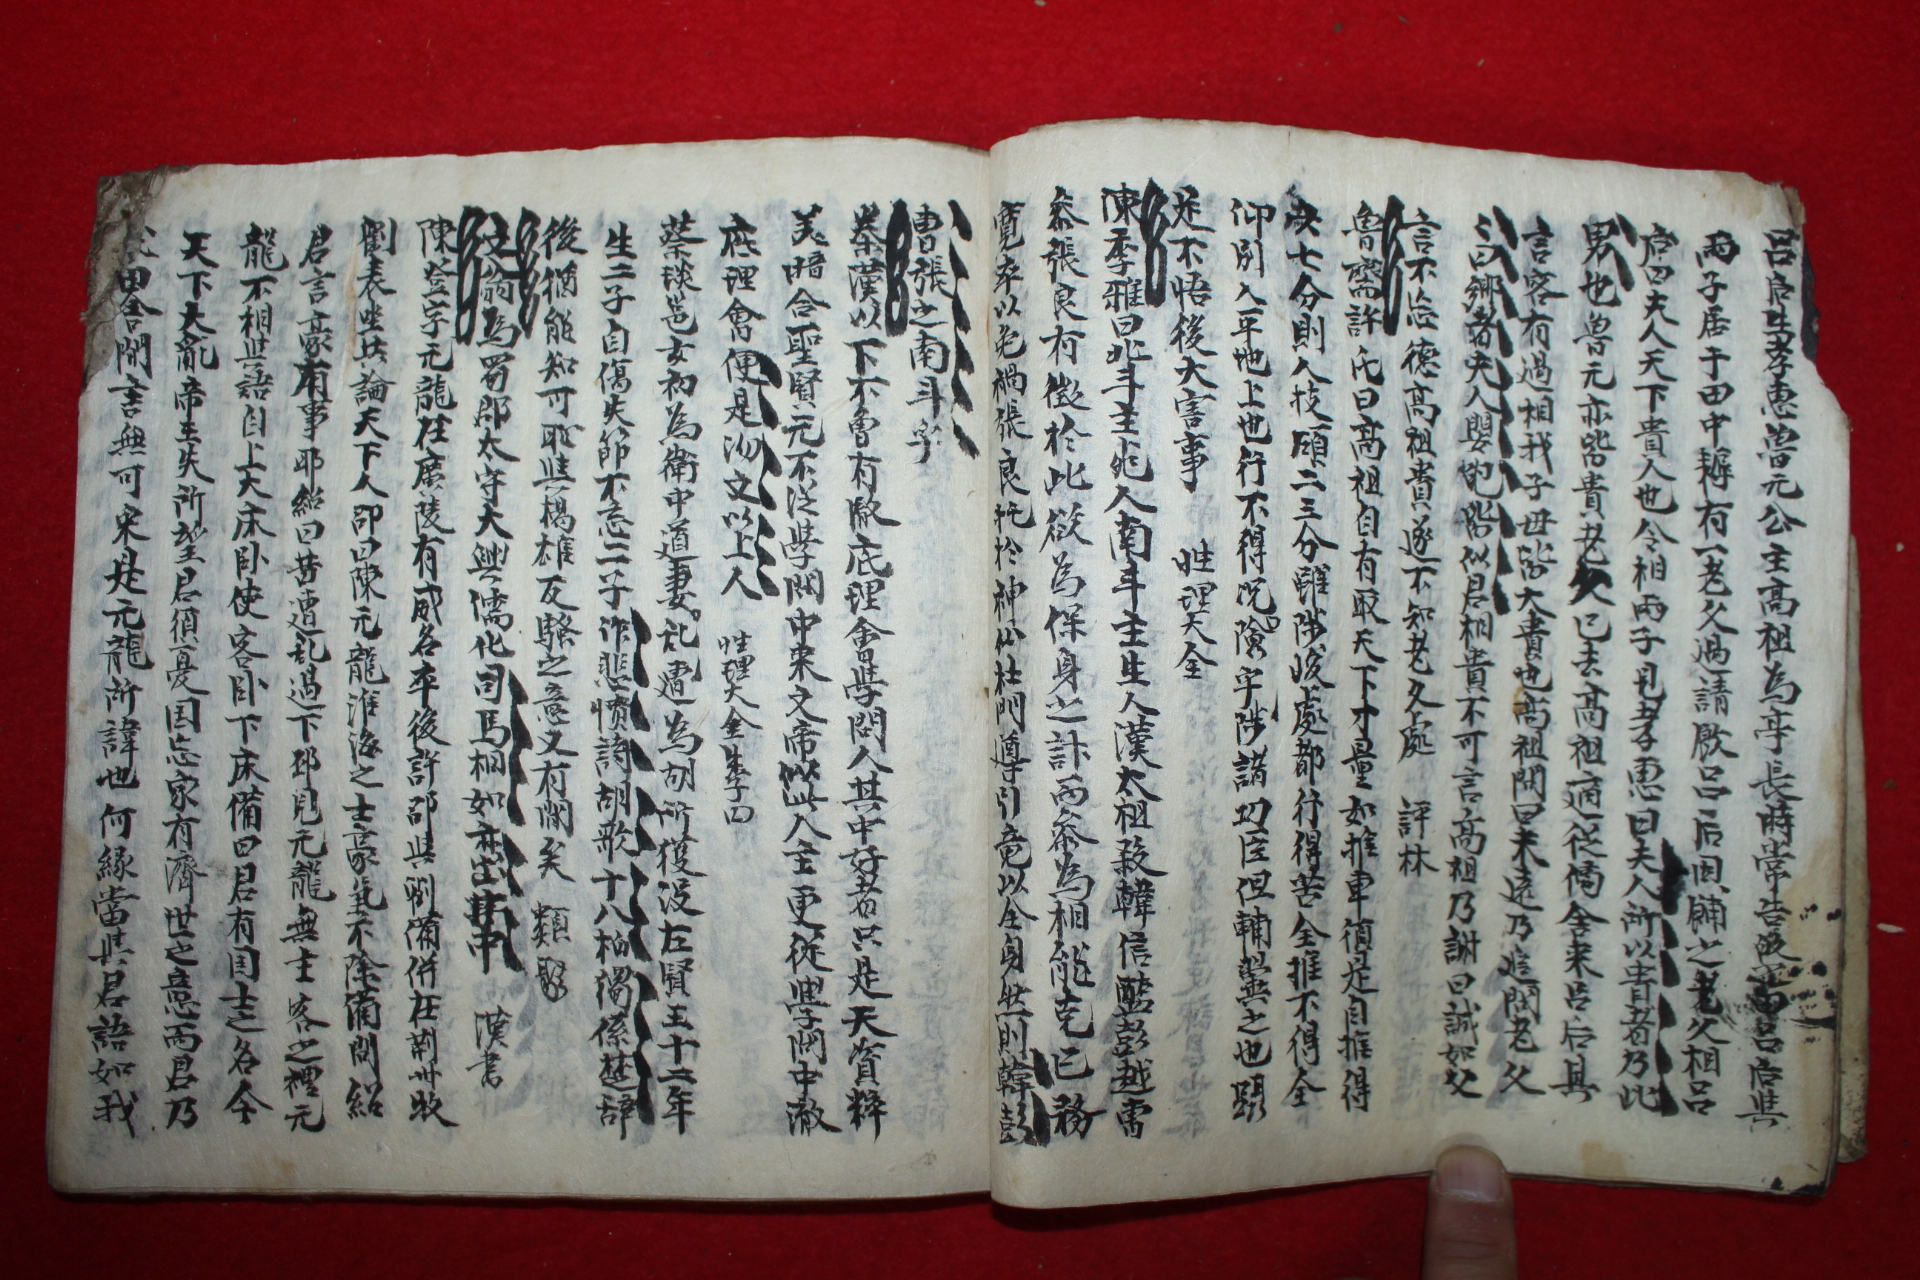 呂后生孝惠魯元公主高祖為亭長時常告歸田呂后与
兩子居于田中耨有一老父過請飲呂后因餔之老父相呂
后曰夫人天下貴人也令相兩子見孝惠曰夫人所以貴者乃此
男也魯元亦皆貴老父已去高祖適從傍舍来呂后具
言客有過相我子母皆大貴也高祖問曰未遠乃追問老父
曰鄉者夫人嬰兒皆似君相貴不可言高祖乃謝曰誠如父
言不忘德高祖貴遂不知老父處 評林
魯齋許氏曰高祖自有取天下才量如推車須是自推得
六七分則人技碩二三分雖陟峻處都行得苦全推不得全
仰別人平地上也行不得况險乎陟諸功臣但輔翼之也顯
是不悟後大害事 性理大全
陳季雅曰北斗主死人南斗主生人漢太祖殺韓信醢彭越雷
叅張良有徵於此欲為保身之計而叅為相能克己務
寬卒以免禍張良托於神仙杜門導引竟以全身然則韓彭
曹張之南斗乎
秦漢以下不曾有澈底理會學問人其中好者只是天資粹
美暗合聖賢元不泛學問中来文帝似此人主更從學問中澈
底理會便是湯文以上人 性理大全朱子曰
蔡琰邕女初為衛中道妻乱遭為胡所獲没左賢王十二年
生二子自傷失節不忘二子作悲憤詩胡歌十八拍獨係楚辞
後猶能知可耻与楊雄反騷之意又有間矣 類聚
文翁為蜀郡太守大興儒化司馬相如亦出其中 漢書
陳登字元龍在廣陵有威名卒後許卲與劉備併在荆州牧
劉表坐共論天下人卲曰陳元龍淮海之士豪氣不除備問紹
君言豪有事耶紹曰昔遭乱過下邳見元龍無主客之禮元
龍不相与語自上大床卧使客卧下床備曰君有国士之名今
天下大亂帝主失所望君須憂国忘家有濟世之意而君乃
求田舍問言無可采是元龍所諱也何緣當与君語如我